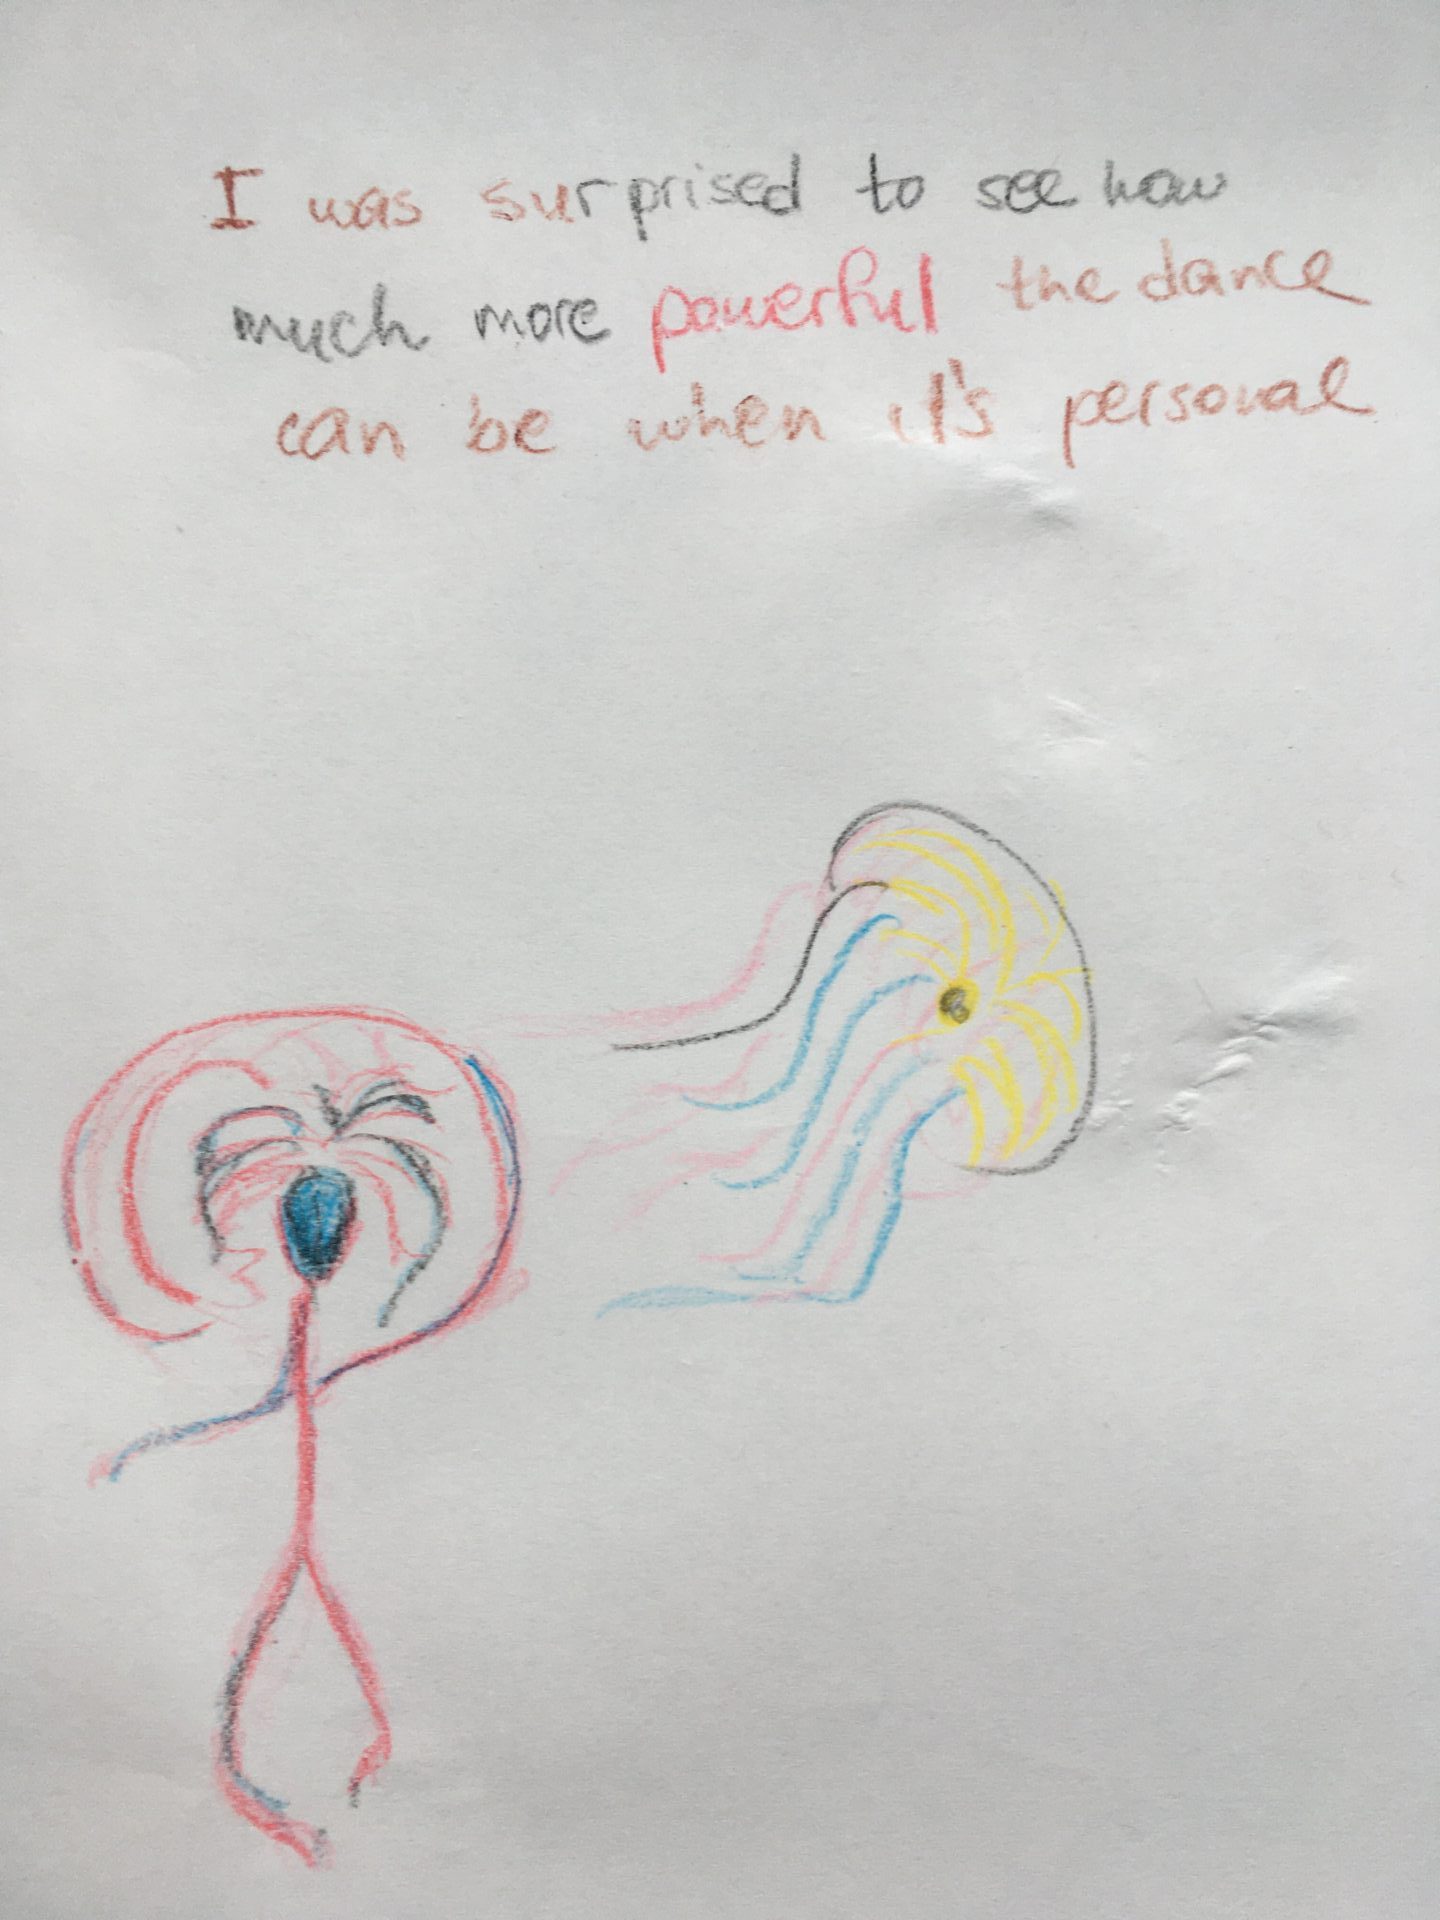 I was surprised to see how
much more powerful the dance
can be when it's personal